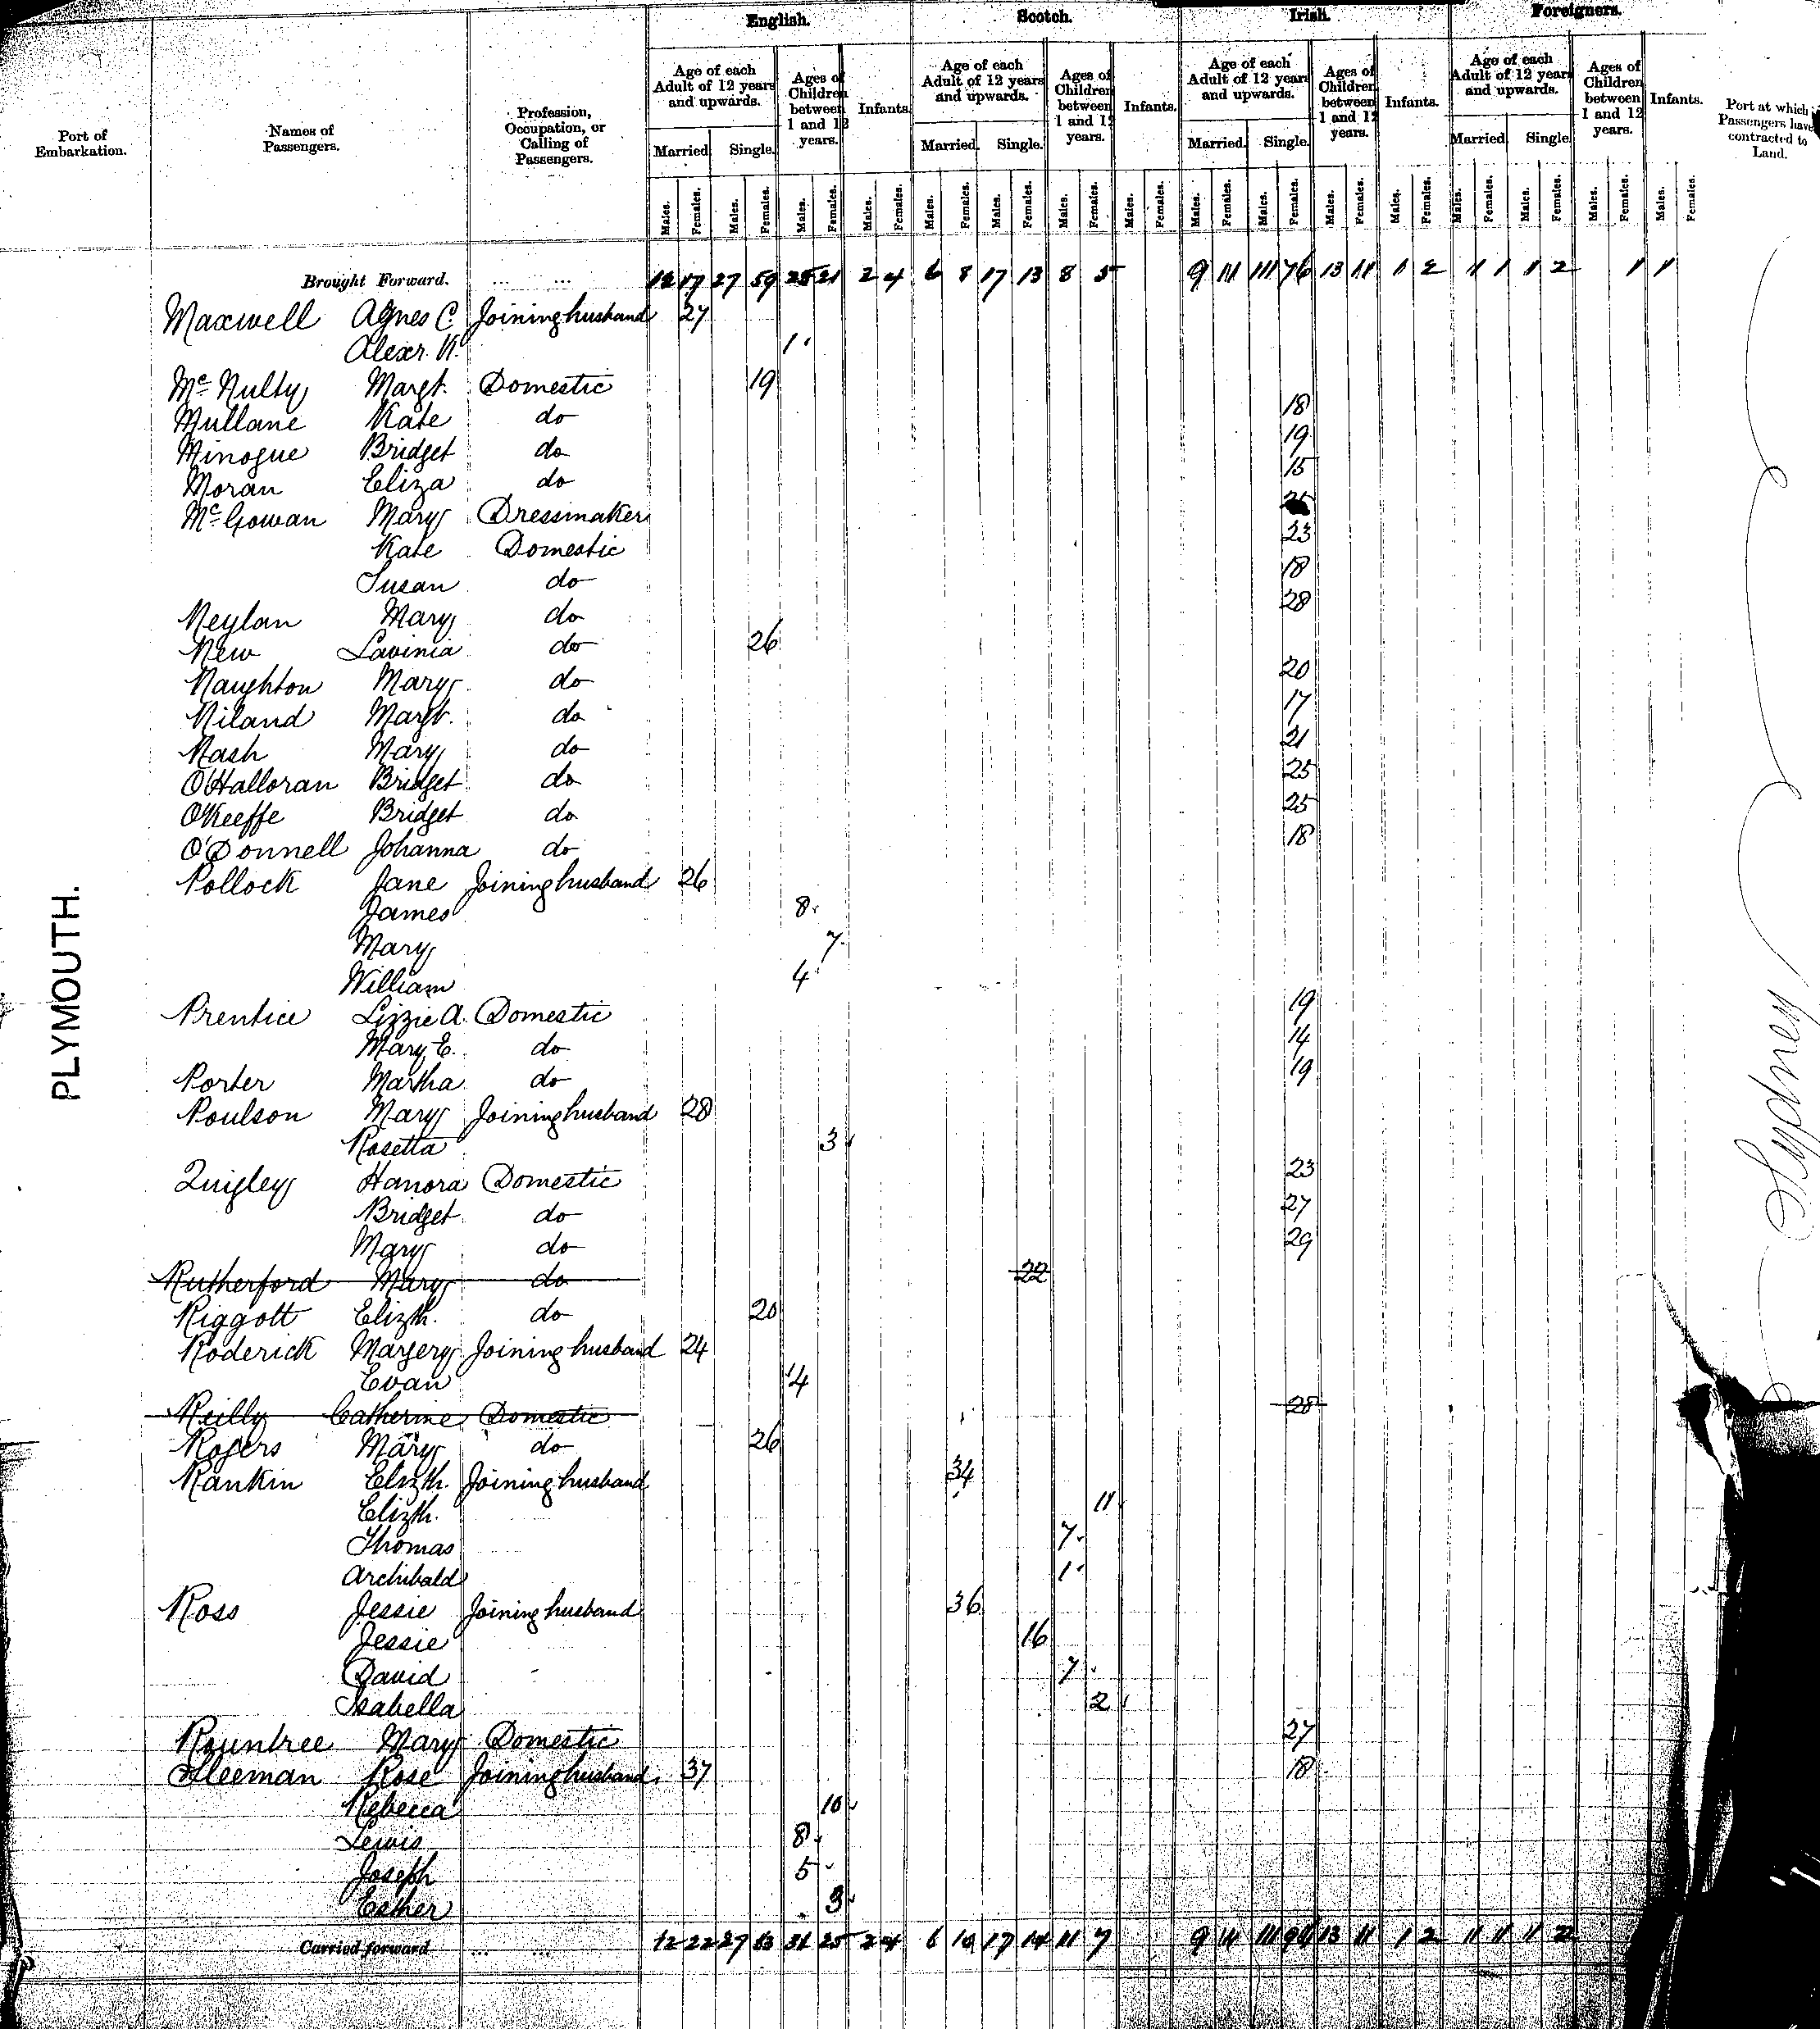 English. Scotch. Irish. Foreigners.
Port of Embarkation. Names of Passengers. Profession, Occupation, or Calling of Passengers. Age of each Adult of 12 years and upwards. Ages of Children between 1 and 12 years. Infants. Age of each Adult of 12 years and upwards. Ages of Children between 1 and 12 years. Infants. Age of each Adult of 12 years and upwards. Ages of Children between 1 and 12 years. Infants. Age of each Adult of 12 years and upwards. Ages of Children between 1 and 12 years. Infants. Port at which Passengers have contracted to Land.
Married. Single. Married. Single. Married. Single. Married. Single.
Males. Females. Males. Females. Males. Females. Males. Females. Males. Females. Males. Females. Males. Females. Males. Females. Males. Females. Males. Females. Males. Females. Males. Females. Males. Females. Males. Females. Males. Females. Males. Females.
Brought Forward. ... ... 12 17 27 59 28 21 2 4 6 8 17 13 8 5 9 111 111 76 13 11 1 2 11 1 1 2 1 1
Maxwell Agnes C. Joining husband 27
Alexr. K. 1
McNulty Margt. Domestic 19
Mullane Kate do 18
Minogue Bridget do 19
Moran Eliza do 15
McGowan Mary Dressmaker 25
Kate Domestic 23
Susan do 18
Neylan Mary do 28
New Lavinia do 26
Naughton Mary do 20
Niland Margt. do 17
Nash Mary do 21
O'Halloran Bridget do 25
O'Keeffe Bridget do 25
O'Donnell Johanna do 18
Pollock Jane Joining husband 26
James 8
Mary 7
William 4
Prentice Lizzie A. Domestic 19
Mary E. do 14
Porter Martha do 19
Poulson Mary Joining husband 28
Rosetta 3
Quigley Hanora Domestic 23
Bridget do 27
Mary do 29
Rutherford Mary do 22
Riggott Elizth. do 20
Roderick Margery Joining husband 24
Evan 4
Reilly Catherine Domestic 28
Rogers Mary do 26
Rankin Elizth. Joining husband 34
Elizth. 11
Thomas 7
Archibald 1
Ross Jessie Joining husband 36
Jessie 16
David 7
Isabella 2
Rountree Mary Domestic 27
Sleeman Rose Joining husband 37 18
Rebecca 10
Lewis 8
Joseph 5
Esther 3
Carried forward ... ... 12 22 27 63 31 25 2 4 6 10 17 14 11 7 9 111 94 13 11 1 2 11 1 1 2
PLYMOUTH.
Sydney